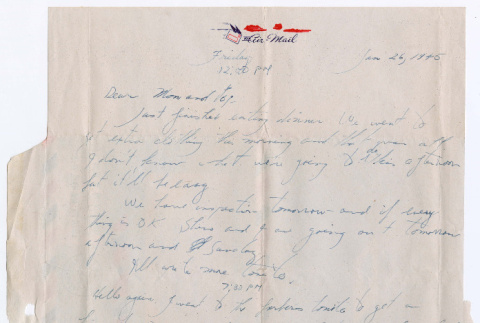 Air Mail
Friday
12:30 PM
Jan 26, 1945
Dear Mom and Pop.
Just finished eating dinner. We went to
get extra clothing this morning and that's all
I don't know what we're going to do this afternoon
but it'll be easy
We have inspection tomorrow and if every
thing is OK and I are going out tomorrow
afternoon and Sunday
I'll write more
7:00 PM
Hello again. I went to the to get a